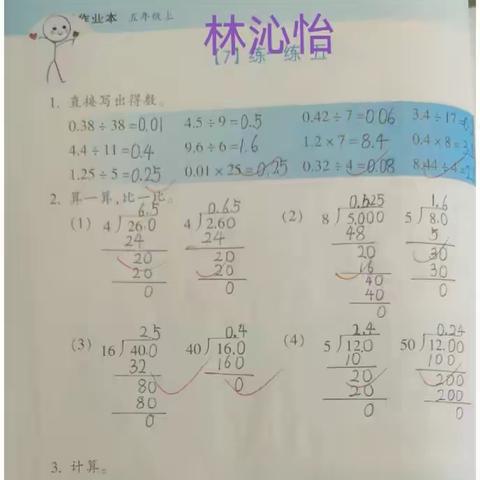 作业本 五年级上
林沁怡
(7) 练一练五
1. 直接写出得数。
0.38÷38=0.01 4.5÷9=0.5 0.42÷7=0.06 3.4÷17=
4.4÷11=0.4 9.6÷6=1.6 1.2×7=8.4 0.4×8=3.
1.25÷5=0.25 0.01×25=0.25 0.32÷4=0.08 8.44÷4=2
2. 算一算,比一比。
6.5 0.65 1.6
(1) 4 26.0 4 2.60 (2) 8 5.000 5 8.0
24 24 48 5
20 20 20 30
20 20 16 30
0 0 40 0
40
0
2.5 0.4 2.4 0.24
(3) 16 40.0 40 16.0 (4) 5 12.0 50 12.00
32 160 10 100
80 0 20 200
80 20 200
0 0 0
3. 计算。